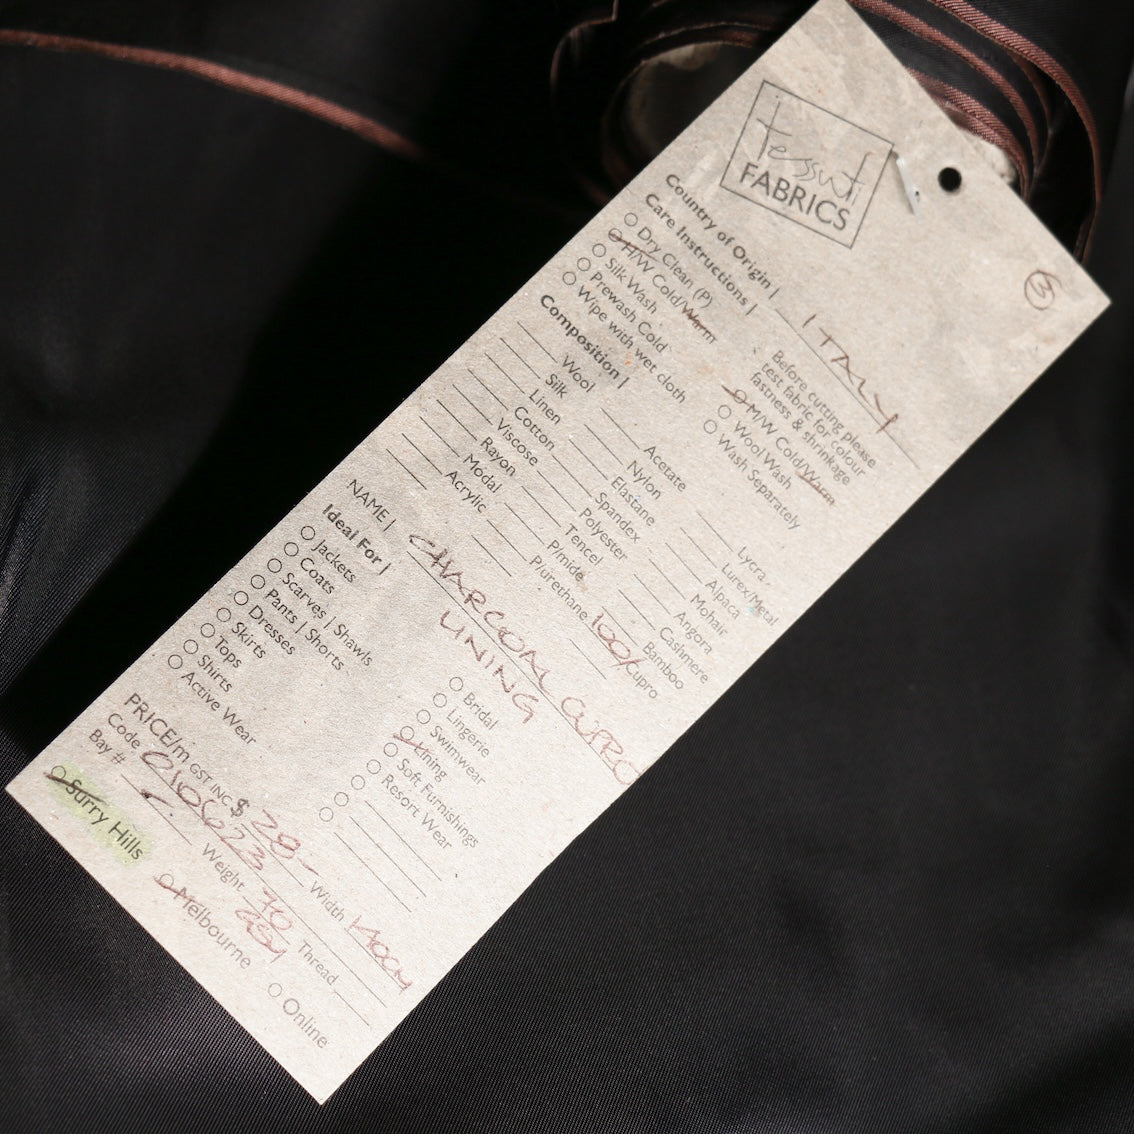 tessuti
FABRICS
3
Country of Origin | ITALY
Care Instructions |
Before cutting please
test fabric for colour
fastness & shrinkage
Dry Clean (P)
H/W Cold/Warm
Silk Wash
Prewash Cold
Wipe with wet cloth
M/W Cold/Warm
Wool Wash
Wash Separately
Composition |
Wool
Silk
Linen
Cotton
Viscose
Rayon
Modal
Acrylic
Acetate
Nylon
Elastane
Spandex
Polyester
Tencel
P/mide
P/urethane
Lycra
Lurex/Metal
Alpaca
Mohair
Angora
Cashmere
Bamboo
100% Cupro
NAME | CHARCOAL CUPRO
LINING
Ideal For |
Jackets
Coats
Scarves | Shawls
Pants | Shorts
Dresses
Skirts
Tops
Shirts
Active Wear
Bridal
Lingerie
Swimwear
Lining
Soft Furnishings
Resort Wear
PRICE/m GST INC $ 28- Width 140CM
Code 010623 Weight 70 GSM Thread
Bay #
Surry Hills Melbourne Online